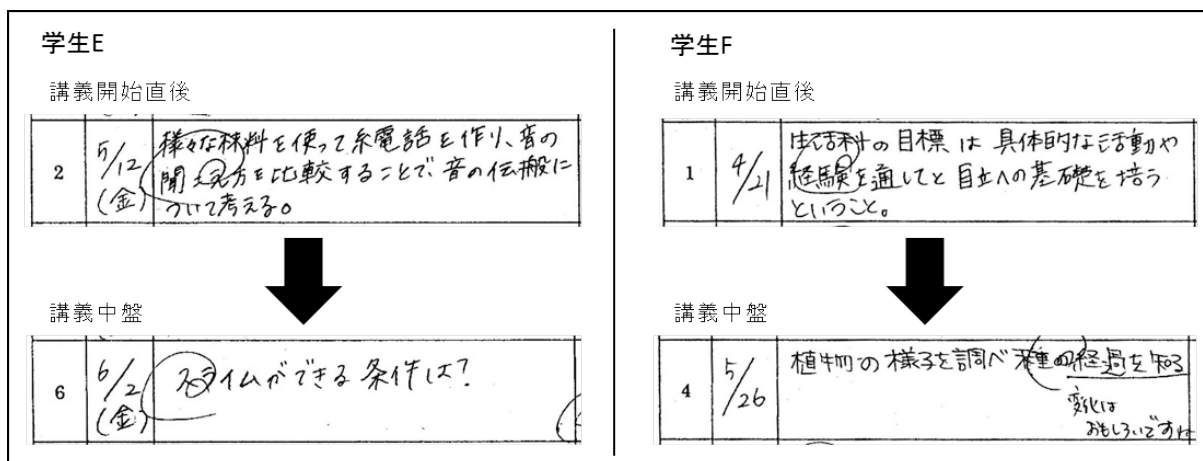 学生E
講義開始直後
2
5/12
(金)
様々な材料を使って糸電話を作り、音の
聞こえ方を比較することで、音の伝搬に
ついて考える。
講義中盤
6
6/2
(金)
スライムができる条件は?
学生F
講義開始直後
1
4/21
生活科の目標は具体的な活動や
経験を通してと自立への基礎を培う
ということ。
講義中盤
4
5/26
植物の様子を調べ種の経過を知る
変化は
おもしろいですね